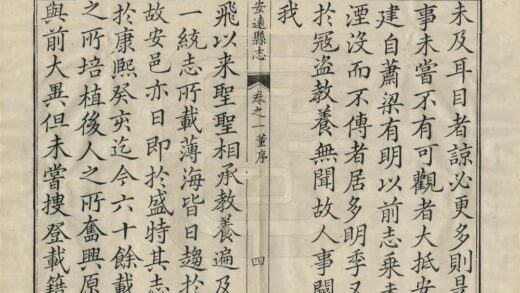 未及耳目者諒必更多則是
事未嘗不有可觀者大抵安
建自蕭梁有明以前志乘未
湮没而不傳者居多明季又
於冦盗教養無聞故人事闕
我
安遠縣志
卷之一 董序
四
飛以来聖聖相承教養遍及
一統志所載薄海皆日趨於
故安邑亦日即於盛特其志
於康熙癸亥迄今六十餘載
之所培植後人之所奮興原
與前大異但未嘗搜登載籍